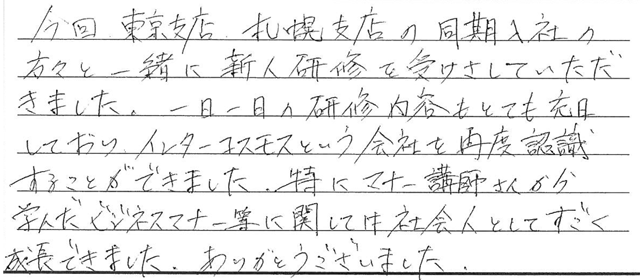 今回 東京支店、札幌支店の同期入社の
方々と一緒に新人研修を受けさしていただ
きました。一日一日の研修内容もとても充実
しており、インターコスモスという会社を再度認識
することができました。特にマナー講師さんから
学んだビジネスマナー等に関しては社会人としてすごく
成長できました。ありがとうございました。